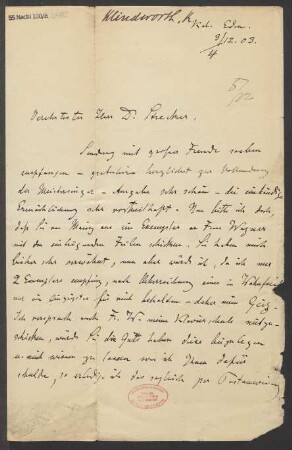 55 Nachl 100/A
Klindworth, K
Kch. Eden
9/12.03.
4
5/12
Verehrtester Herr Dr. Strecker.
Sendung mit grosser Freude soeben
empfangen – gratulire herzlichst zur Vollendung
der Meistersinger-Ausgabe sehr schön – die einbändige
sehr vorteilhaft. Nun bitte ich doch,
dass Sie von Mainz aus ein Exemplar an Frau Wagner
mit den einliegenden Zeilen schicken. Sie haben mich
bisher sehr verwöhnt, nun aber würde ich, da ich nur
2 Exemplare empfing, nach Überreichung eines in Wahnfried
nur ein für mich behalten – daher mein Geiz.
Ich versprach auch Fr. W. meine Klavierschule mitzu-
schicken, würden Sie die Güte haben diese beizulegen
u. mich wissen zu lassen was ich Ihnen dafür
schulde, so erledige ich das sogleich per Postanweisung